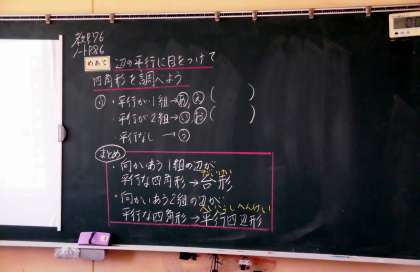 教P76
ノートP.86
めあて 辺の平行に目をつけて
四角形を調べよう
① ・平行が1組→ ( )
・平行が2組→ ( )
平行なし→
まとめ
・向かいあう1組の辺が
平行な四角形→台形
だいけい
・向かいあう2組の辺が
平行な四角形→平行四辺形
へいこうしへんけい